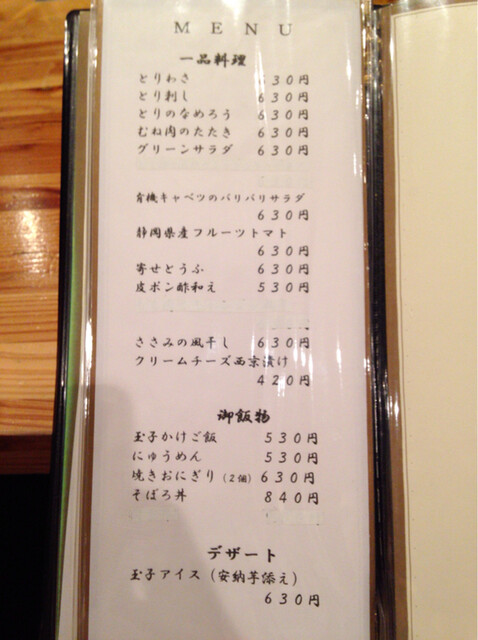 MENU
一品料理
とりわさ 630円
とり刺し 630円
とりのなめろう 630円
むね肉のたたき 630円
グリーンサラダ 630円
有機キャベツのバリバリサラダ
630円
静岡県産フルーツトマト
630円
寄せとうふ 630円
皮ポン酢和え 530円
ささみの風干し 630円
クリームチーズ西京漬け
420円
御飯物
玉子かけご飯 530円
にゅうめん 530円
焼きおにぎり(2個) 630円
そぼろ丼 840円
デザート
玉子アイス(安納芋添え)
630円